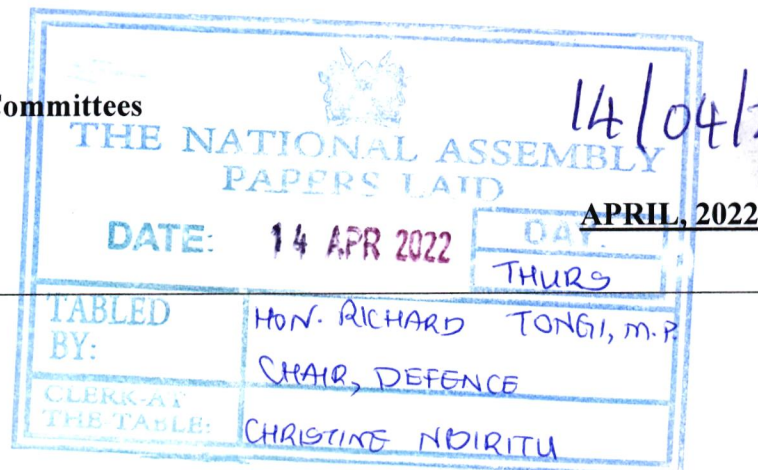 ommittees
14/04/2
THE NATIONAL ASSEMBLY
PAPERS LAID
APRIL, 2022
DATE: 14 APR 2022 DAY.
THURS
TABLED BY: HON. RICHARD TONGI, M.P.
CHAIR, DEFENCE
CLERK-AT THE-TABLE: CHRISTINE NDIRITU